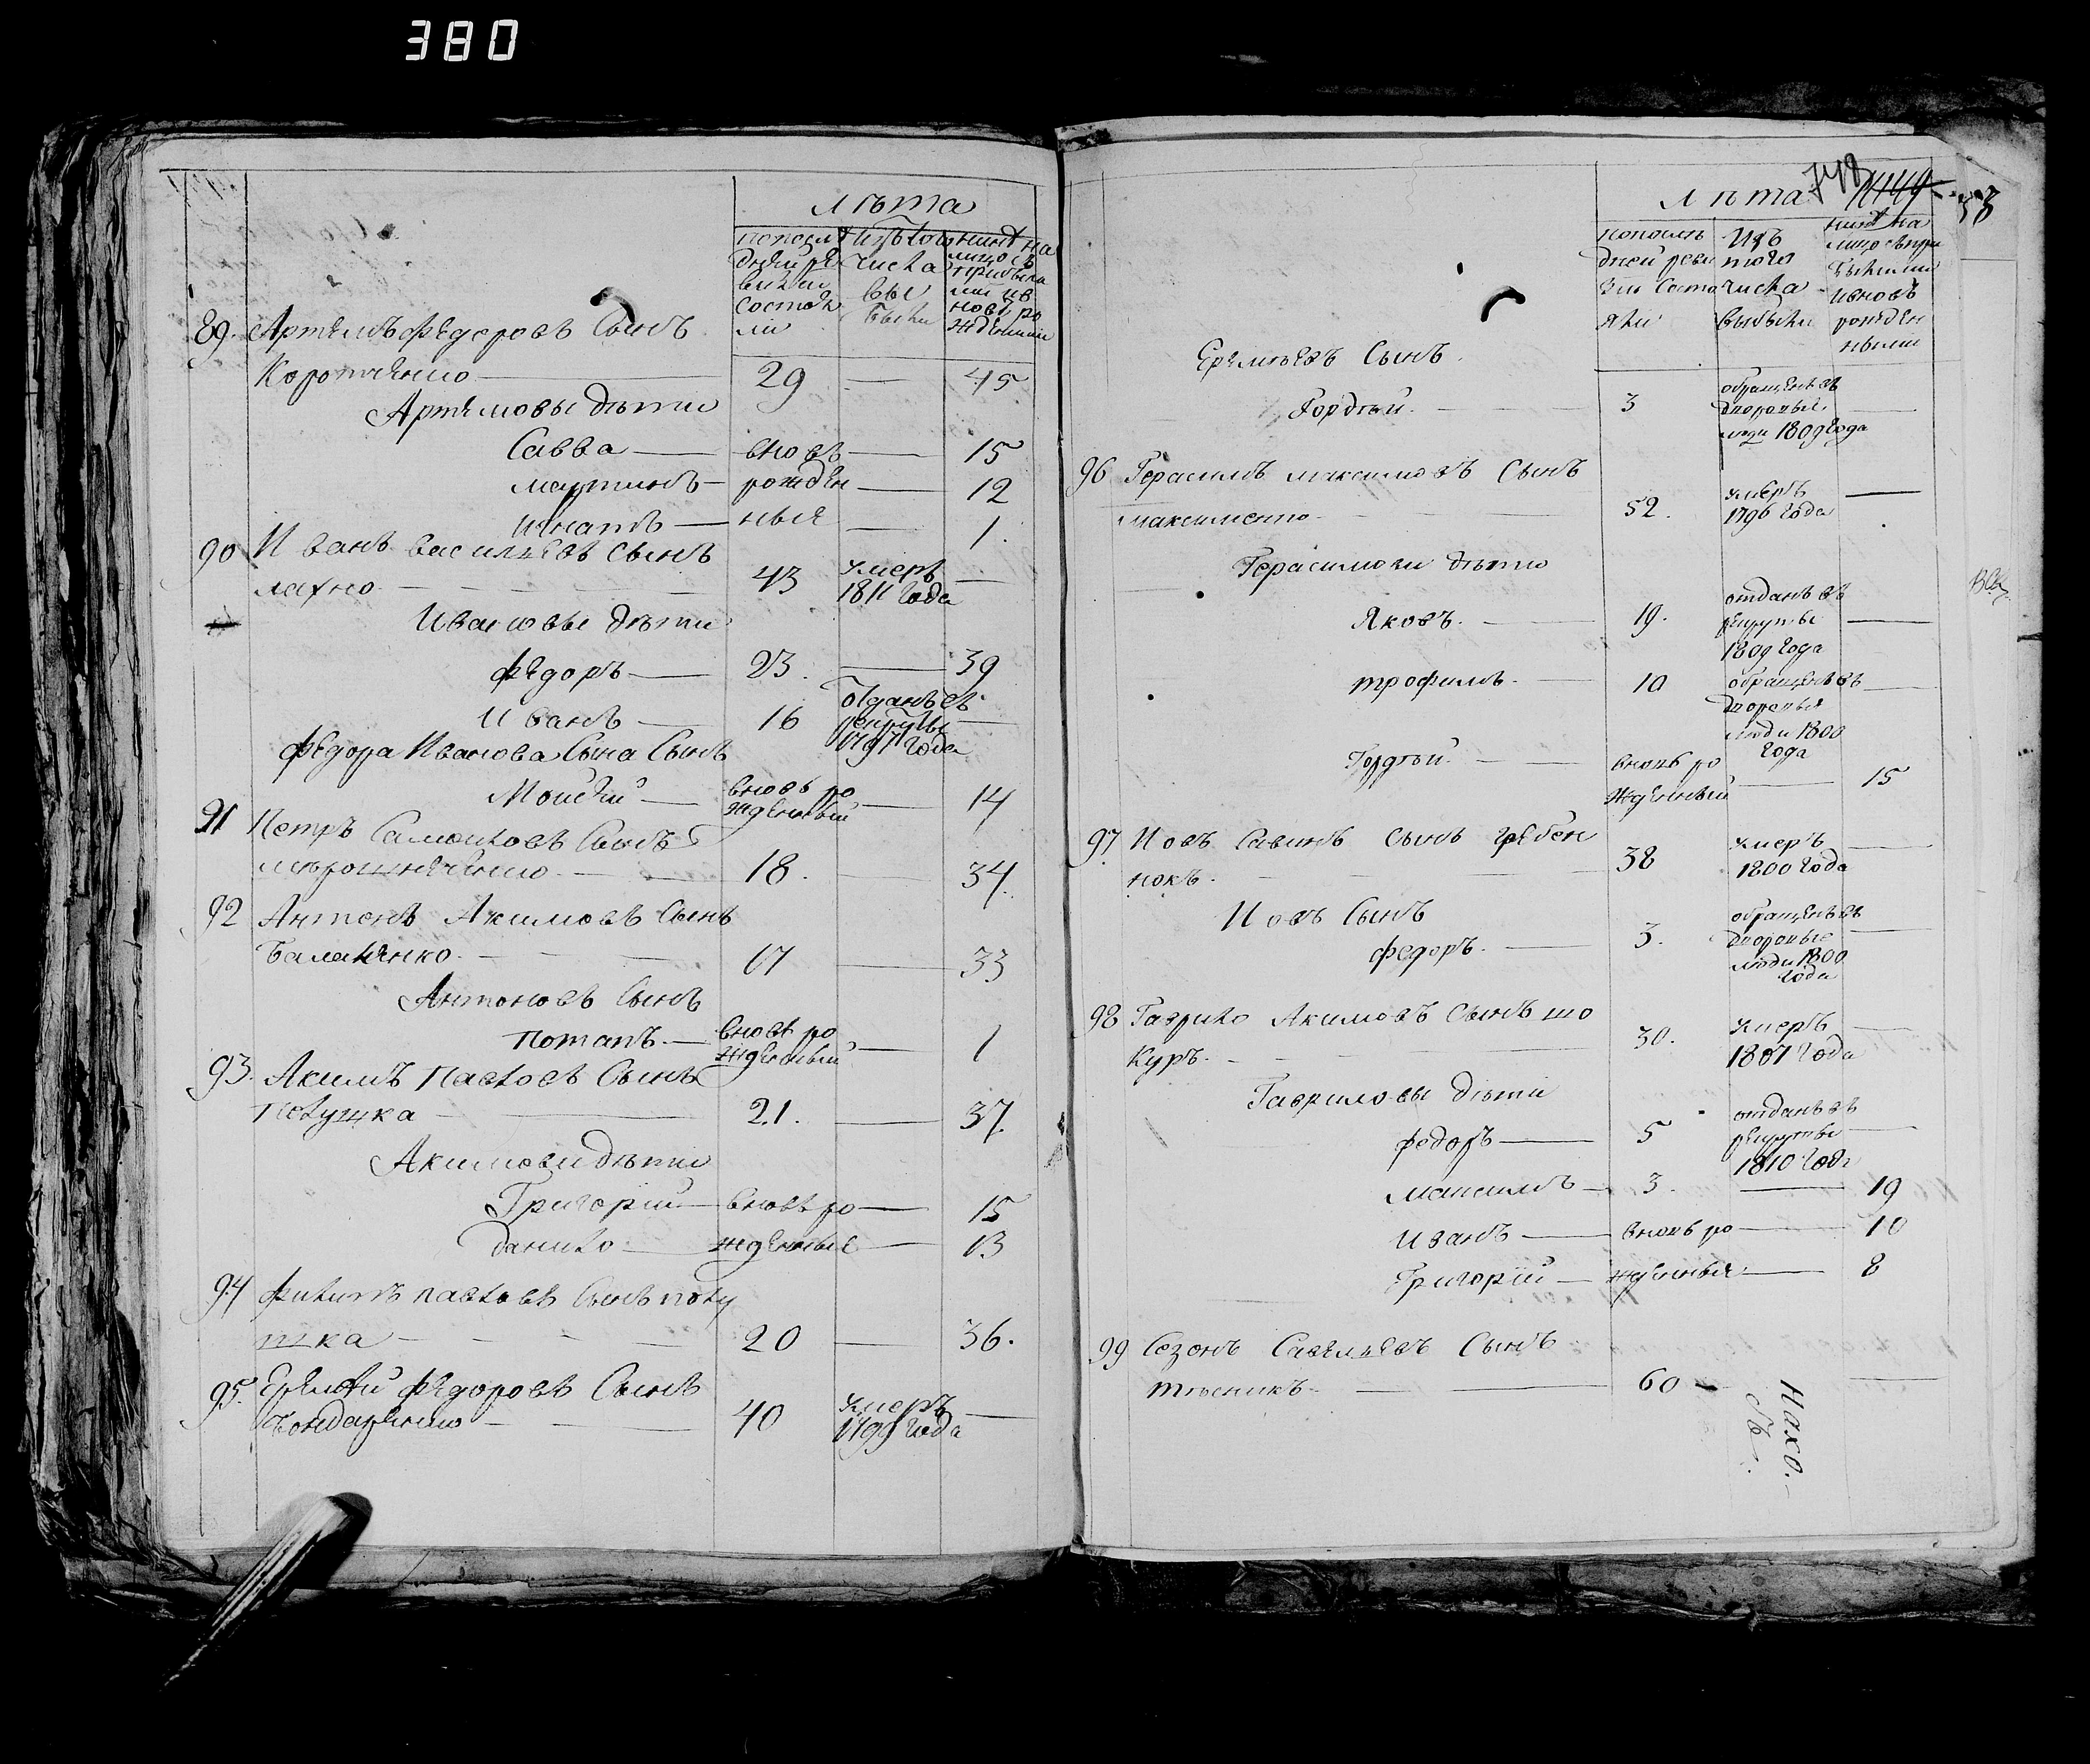 380
лѣта
попослѣ дней ре визіи состоя ли
изътого числа вы были
нынѣ на лицо съ прибыла ми и в новь ро ждеными
89. Артемъ Федоровъ Сынъ
Коротченко 29 — 45
Артемовы дѣти
Савва — вновь — 15
мартинъ — рожден — 12
Игнатъ — ныя — 1.
90 Иванъ васильевъ сынъ
лахно 43 умеръ 1811 года —
Ивановы дѣти
Федоръ — 23. — 39
Иванъ — 16 отданъ въ рекруты 1797 года —
Федора Иванова Сына Сынъ
Моисей — вновь ро жденный — 14
91 Петръ Самойловъ Сынъ
мирошниченко 18. — 34.
92 Антонъ Акимовъ Сынъ
Балабенко 17 — 33
Антоновъ Сынъ
потапъ — вновь ро жденный — 1
93. Акимъ Павловъ Сынъ
Полушка 21. — 37.
Акимови дѣти
Григорий — вновь ро — 15
данило — жденные — 13
94 Филипъ павловъ Сынъ полу
шка 20 — 36.
95. Еремѣй федоровъ Сынъ
Бондаренко 40 умеръ года —
748
53
лѣта
попослѣ дней реви зіи Состо яли
Изъ того числа выбыли
нынѣ на лицо съ при былыми ивновь рожден ными
Еремѣевъ Сынъ.
Гордѣй. — 3 обращенъ въ дворовые люди 1809 года —
96 Герасимъ максимовъ Сынъ
максименко 52. умеръ 1796 года —
Герасимови дѣти
Яковъ. — 19. отданъ въ рекруты 1809 года —
трофимъ. — 10 обращенъ въ дворовыя люди 1800 года —
Гордѣй. — вновь ро жденный — 15
97. Иовъ Савинъ Сынъ гребен
нокъ. 38 умеръ 1800 года —
Иовъ Сынъ
федоръ. — 3. обращенъ въ дворовые люди 1800 года —
98 Гаврило Акимовъ Сынъ шо
Куръ. 30. умеръ 1807 года —
Гавриловы дѣти
федоръ — 5 отданъ въ рекруты 1810 года —
Максимъ — 3. — 19
Иванъ — вновь ро — 10
Григорій — жденныя — 8
99 Созонъ Савельевъ Сынъ
тѣсникъ. 60 —